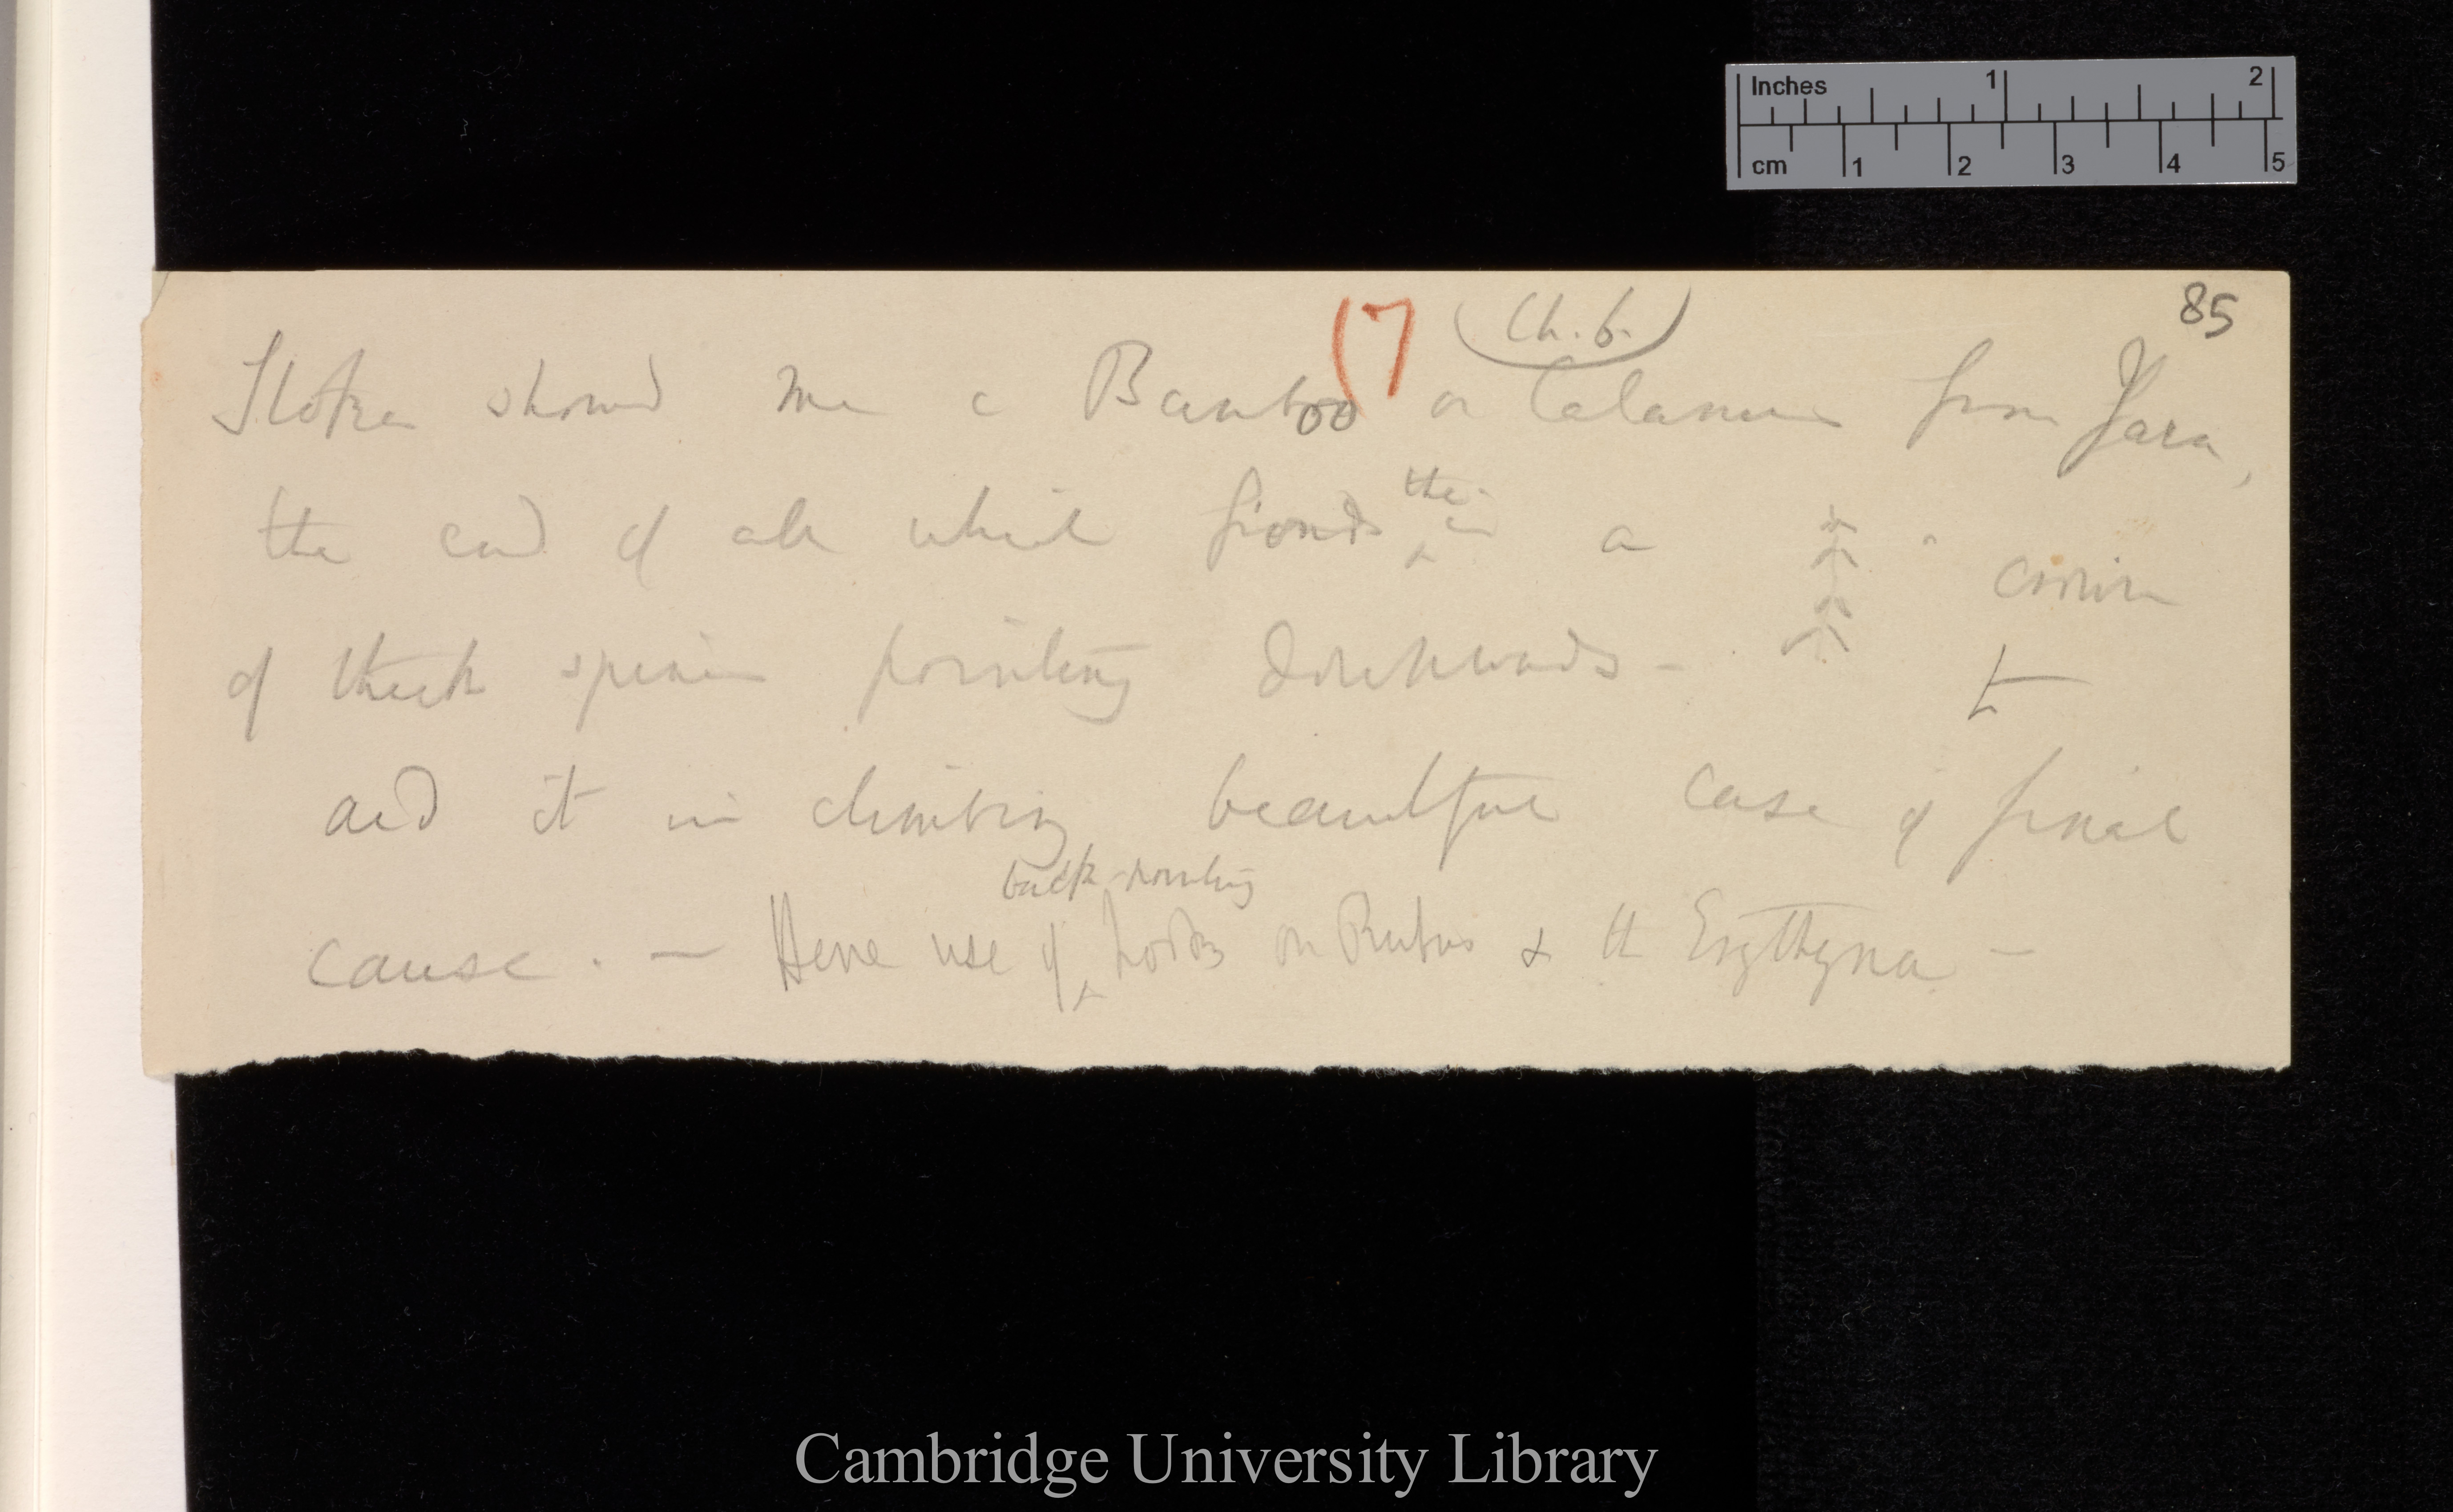 Inches 1 2
cm 1 2 3 4 5
(7 (Ch. 6.) 85
showed me a Bamboo or Calamus from Java,
the end of all which fronds there is a crown
of thick spines pointing downwards — to
aid it in climbing beautiful case of final
back-pointing
cause. — Hence use of hooks on Rubus & the Erythrina —
Cambridge University Library